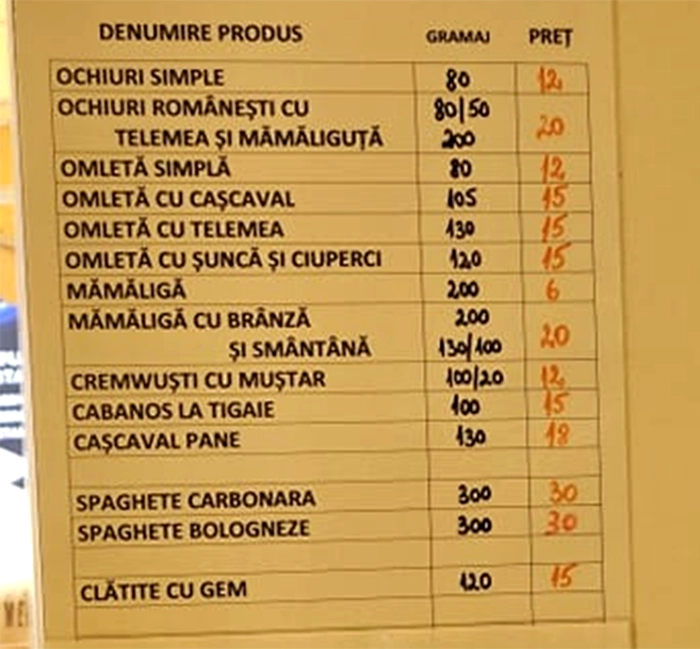 DENUMIRE PRODUS GRAMAJ PREȚ
OCHIURI SIMPLE 80 12
OCHIURI ROMÂNEȘTI CU 80/50
TELEMEA ȘI MĂMĂLIGUȚĂ 200 20
OMLETĂ SIMPLĂ 80 12
OMLETĂ CU CAȘCAVAL 105 15
OMLETĂ CU TELEMEA 130 15
OMLETĂ CU ȘUNCĂ ȘI CIUPERCI 120 15
MĂMĂLIGĂ 200 6
MĂMĂLIGĂ CU BRÂNZĂ 200
ȘI SMÂNTÂNĂ 130/100 20
CREMWUȘTI CU MUȘTAR 100/20 12
CABANOS LA TIGAIE 100 15
CAȘCAVAL PANE 130 18
SPAGHETE CARBONARA 300 30
SPAGHETE BOLOGNEZE 300 30
CLĂTITE CU GEM 120 15